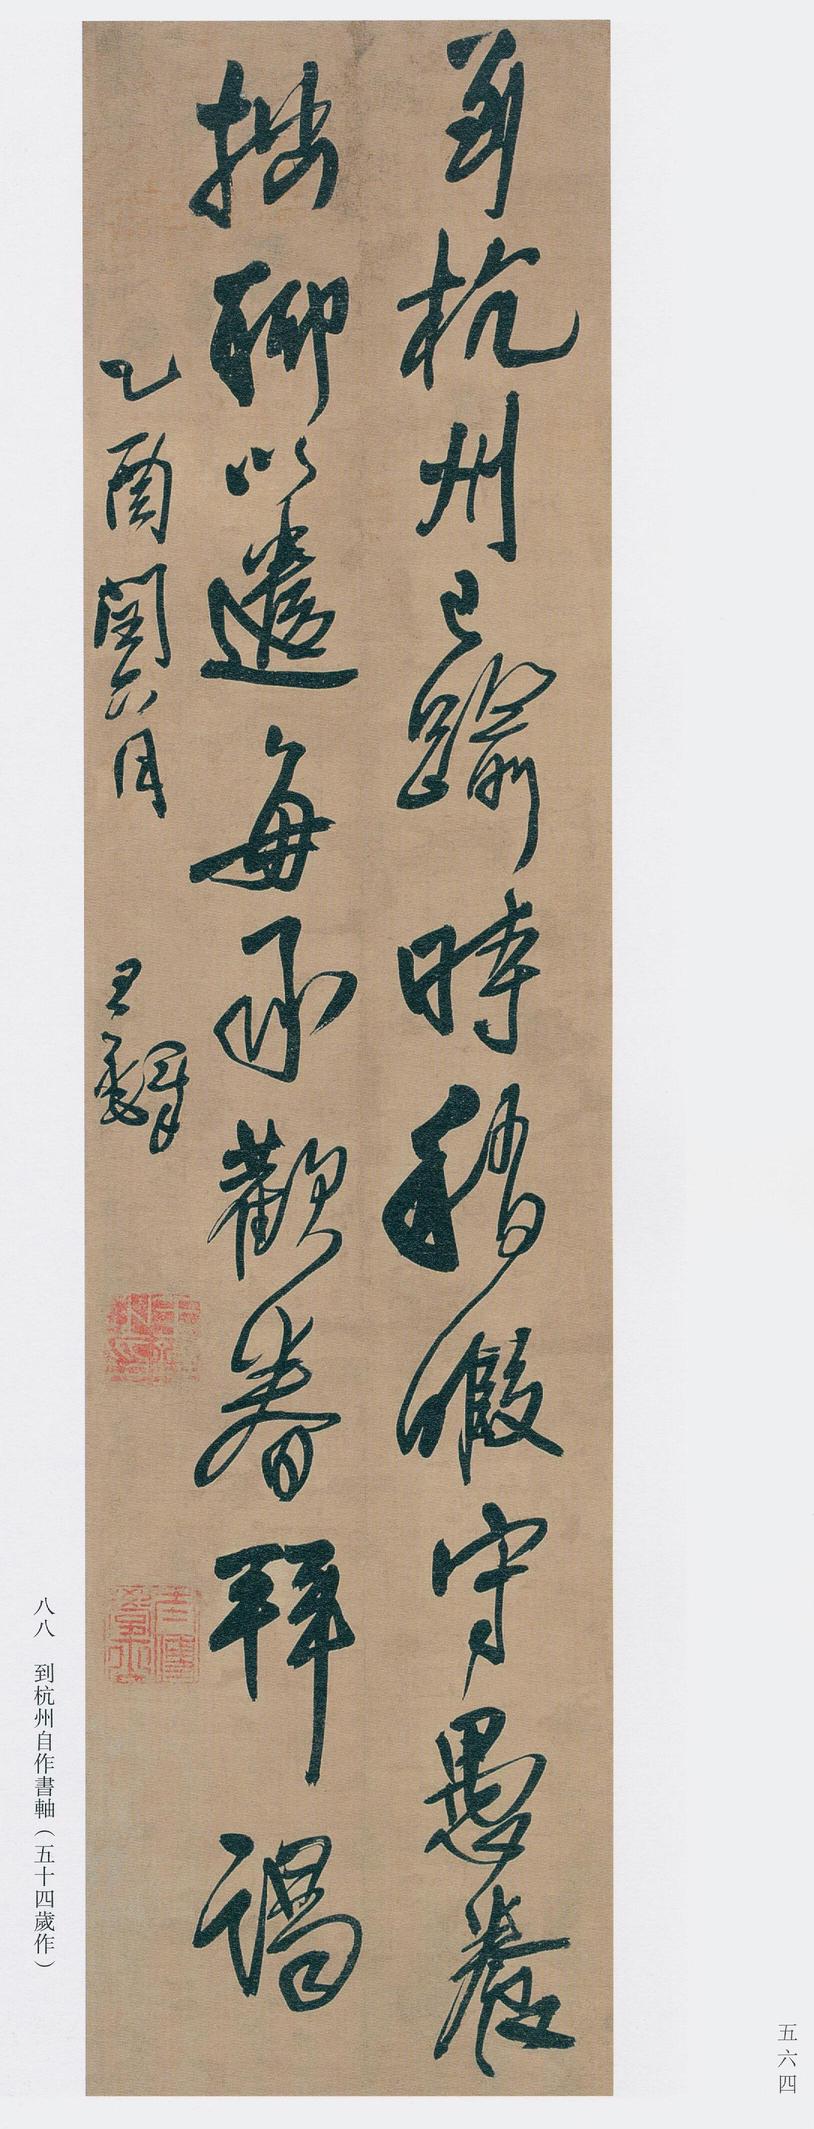 到杭州已踰時稍暇守愚養
拙聊以遣每承歡眷拜謁
乙酉閏六月 王鐸
八八 到杭州自作書軸（五十四歲作）
五六四